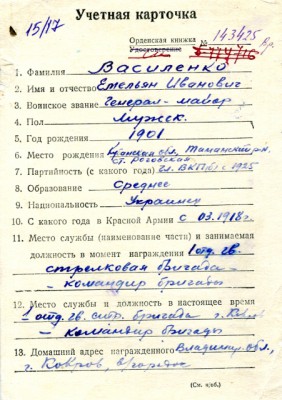 15/17
Учетная карточка
Орденская книжка № 143425
Удостоверение
1. Фамилия Василенко
2. Имя и отчество Емельян Иванович
3. Воинское звание Генерал-майор
4. Пол Мужск.
5. Год рождения 1901
6. Место рождения обл. Таманский р-н,
ст. Роговская
7. Партийность (с какого года) чл. ВКП(б) с 1925
8. Образование Среднее
9. Национальность Украинец
10. С какого года в Красной Армии с 03.1918 г.
11. Место службы (наименование части) и занимаемая
должность в момент награждения 1 отд. гв.
стрелковая бригада –
– командир бригады
12. Место службы и должность в настоящее время
1 отд. гв. стр. бригада г. Ковров
– командир бригады
13. Домашний адрес награжденного Владимир. обл.,
г. Ковров,
(См. н/об.)